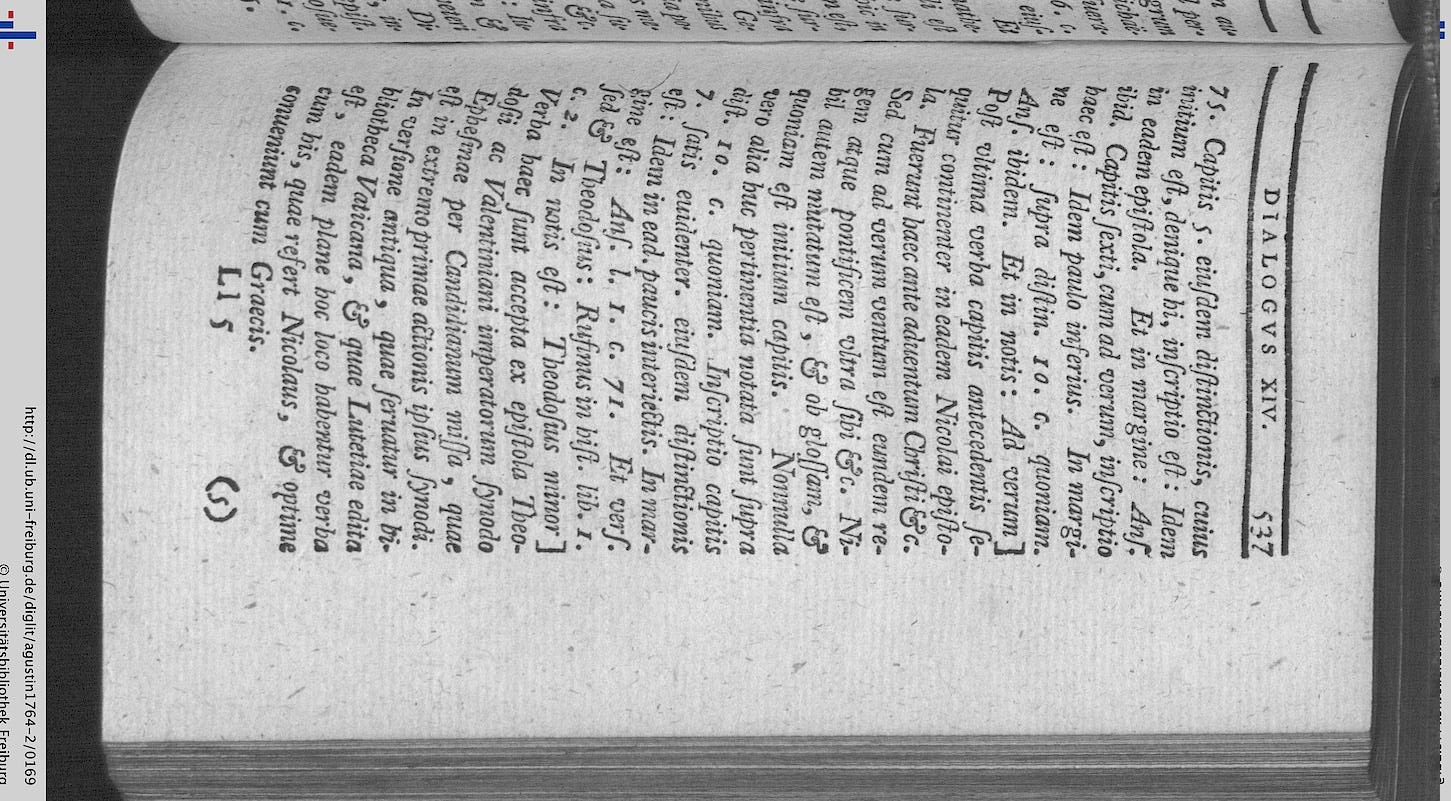 DIALOGVS XIV. 537
75. Capitis 5. eiuſdem diſtinctionis, cuius
initium eſt, denique hi, inſcriptio eſt: Idem
in eadem epiſtola. Et in margine: Anſ.
ibid. Capitis ſexti, cum ad verum, inſcriptio
haec eſt: Idem paulo inferius. In margi-
ne eſt: ſupra diſtin. 10. c. quoniam.
Anſ. ibidem. Et in notis: Ad verum]
Poſt vltima verba capitis antecedentis ſe-
quitur continenter in eadem Nicolai epiſto-
la. Fuerunt haec ante aduentum Chriſti &c.
Sed cum ad verum ventum eſt eundem re-
gem atque pontificem vltra ſibi &c. Ni-
hil autem mutatum eſt, & ob gloſſam, &
quoniam eſt initium capitis. Nonnulla
vero alia huc pertinentia notata ſunt ſupra
diſt. 10. c. quoniam. Inſcriptio capitis
7. ſatis euidenter. eiuſdem diſtinctionis
eſt: Idem in ead. paucis interiectis. In mar-
gine eſt: Anſ. l. 1. c. 71. Et verſ.
ſed & Theodoſius: Rufinus in hiſt. lib. 1.
c. 2. In notis eſt: Theodoſius minor]
Verba haec ſunt accepta ex epiſtola Theo-
doſii ac Valentiniani imperatorum ſynodo
Epheſinae per Candidianum miſſa, quae
eſt in extremo primae actionis ipſius ſynodi.
In verſione antiqua, quae ſeruatur in bi-
bliotheca Vaticana, & quae Lutetiae edita
eſt, eadem plane hoc loco habentur verba
cum his, quae refert Nicolaus, & optime
conueniunt cum Graecis.
Ll 5 (s)
http://dl.ub.uni-freiburg.de/diglit/agustin1764-2/0169
© Universitätsbibliothek Freiburg